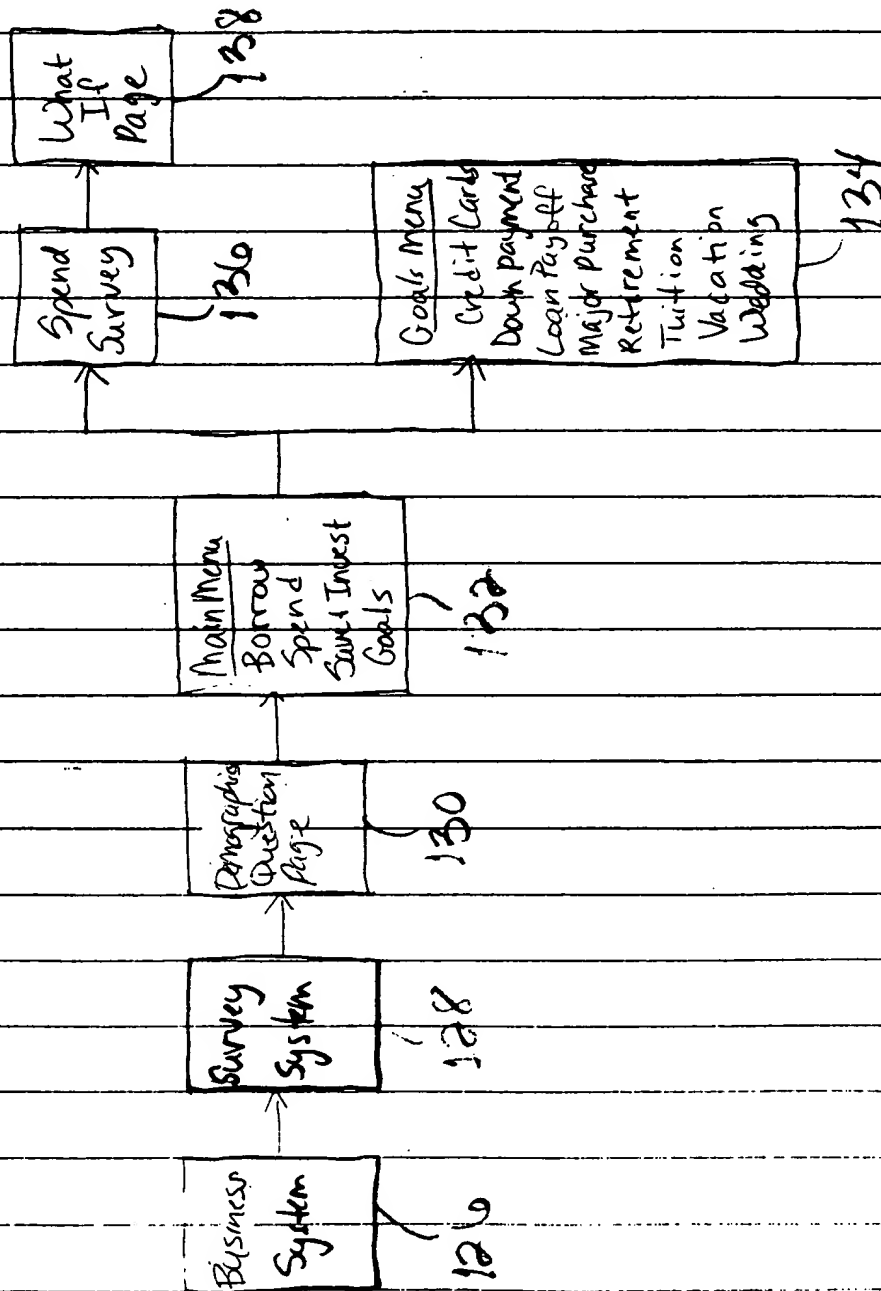 Business
System
126
Survey
System
128
Demographic
Question
Page
130
Main Menu
Borrow
Spend
Save & Invest
Goals
132
Spend
Survey
136
What
If
Page
138
Goals Menu
Credit Cards
Down payment
Loan Payoff
Major Purchase
Retirement
Tuition
Vacation
Wedding
134